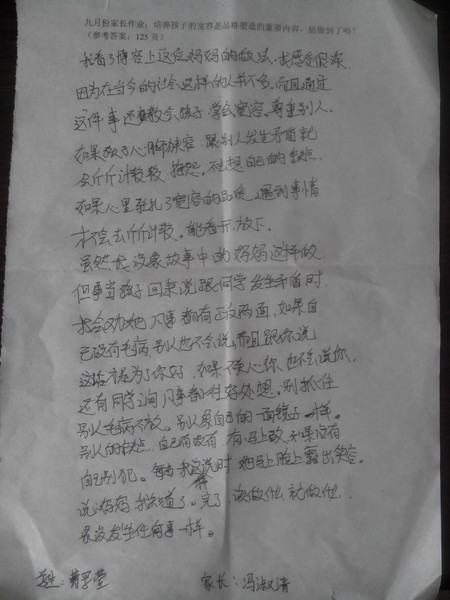 九月份家长作业:培养孩子的宽容是品格塑造的重要内容,您做到了吗?
(参考答案:125页)
我看了博客上这位妈妈的做法,我感受很深.
因为在当今的社会这样的人并不多,而且通过
这件事还教会孩子学会宽容,尊重别人.
如果孩子心胸狭窄.跟别人发生矛盾就
会斤斤计较 抱怨.不想自己的缺点.
如果心里扎了宽容的品质,遇到事情
才不会去斤斤计较.能看开.放下.
虽然我没象故事中的妈妈这样做.
但事当孩子回来说跟同学发生矛盾时.
我会劝她凡事都有正反两面,如果自
己没有毛病,别人也不会说,而且跟你说
这话才是为了你好,如果不关心你,也不会说你.
还有同学之间凡事都往好处想.别抓住
别人毛病不放.别人象自己的一面镜子一样.
别人的缺点.自己有没有 有马上改,如果没有
自己别犯.每当我这样说时 她马上脸上露出笑容.
说:妈妈我知道了.完了 该做什么就做什么.
象没发生任何事一样。
家长:冯淑清